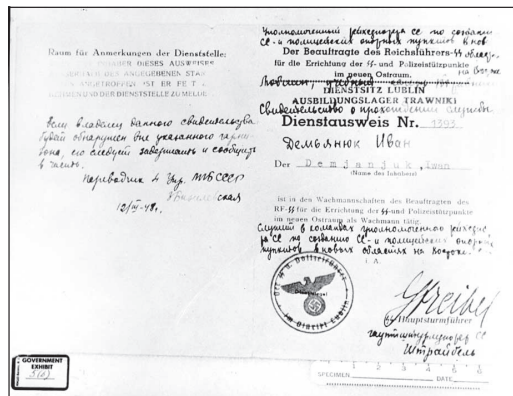 Raum für Anmerkungen der Dienststelle:
DIESES AUSWEISES
DES ANGEGEBENEN STAN
IST ER FE T
UND DER DIENSTSTELLE ZU MELDE
Если владелец данного свидетельства
будет обнаружен вне указанного гарни
зона, его следует задержать и сообщить
в часть.
Переводчик 4 Упр. МГБ СССР
12/III-48г.
GOVERNMENT
EXHIBIT
Уполномоченный рейхсфюрера СС по созданию
СС- и полицейских опорных пунктов в нов
Der Beauftragte des Reichsführers-SS областях
für die Errichtung der SS- und Polizeistützpunkte
im neuen Ostraum. на Востоке
Люблин, учебный
DIENSTSITZ LUBLIN
AUSBILDUNGSLAGER TRAWNIKI
Свидетельство о прохождении службы
Dienstausweis Nr. 1393
Демьянюк Иван
Der Demjanjuk Iwan
(Name des Inhabers)
ist in des Wachmannschaften des Beauftragten des
RF-SS für die Errichtung der SS-und Polizeistützpunkte
im neuen Ostraum als Wachmann tätig.
Служит в командах уполномоченного рейхсфю
ра СС по созданию СС- и полицейских опорн
пунктов в новых областях на Востоке.
I. A.
im Distrikt Lublin
Streibel
SS Hauptsturmführer
гауптштурмфюрер СС
Штрайбель
SPECIMEN
DATE